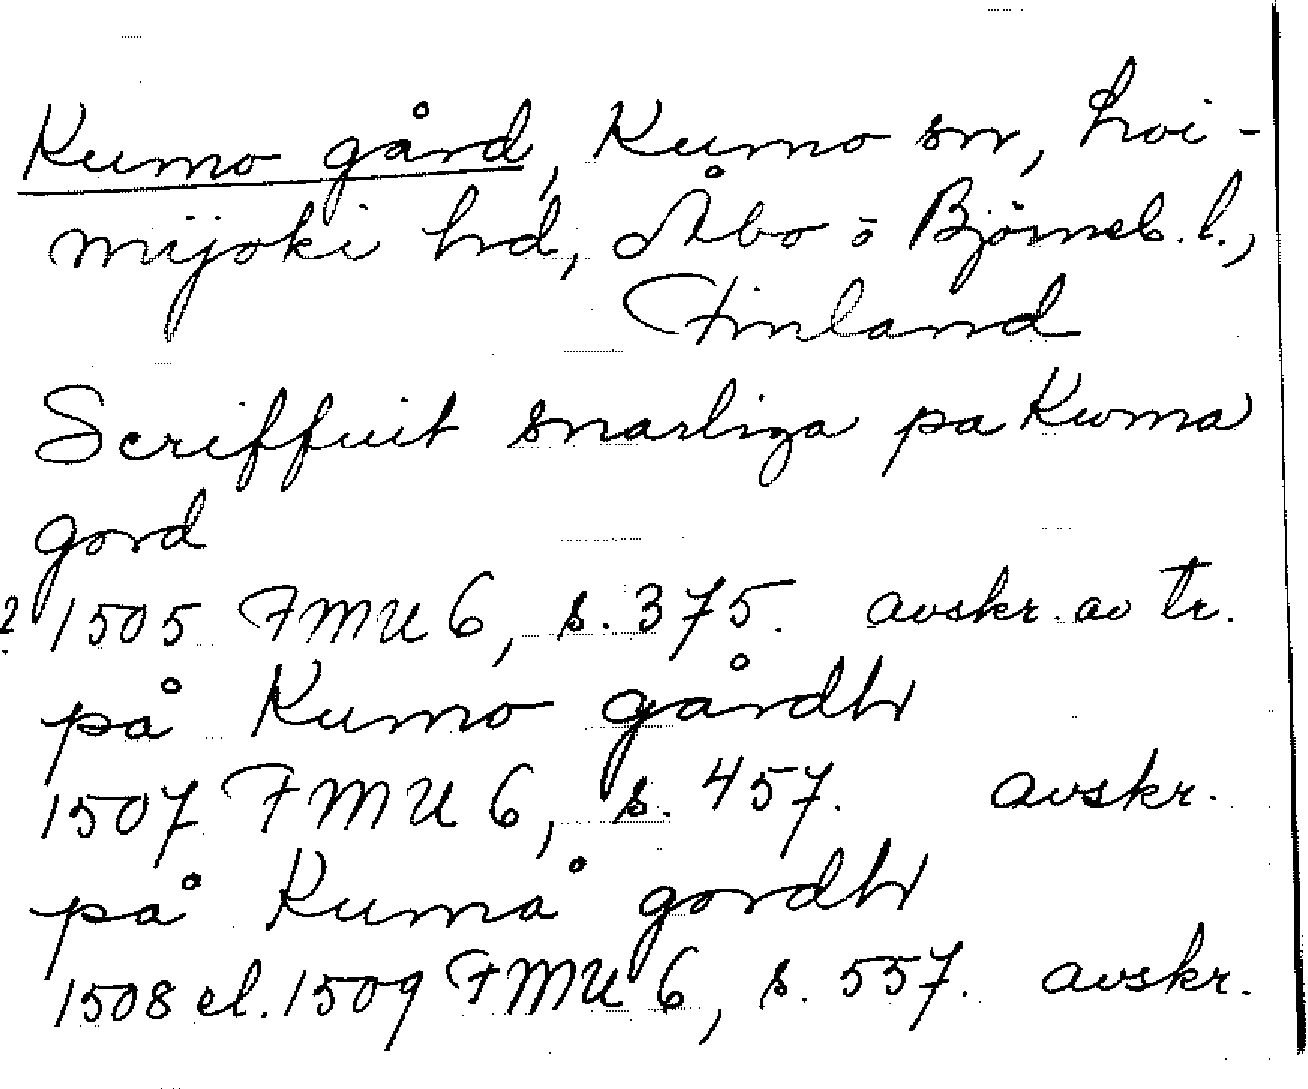 Kumo gård, Kumo sn, Loi-
mijoki hd, Åbo o Björneb. l.,
Finland
Scriffuit snarliga pa Kwma
gord
? 1505 FMU 6, s. 375. avskr. av tr.
på Kumo gårdh
1507 FMU 6, s. 457. avskr.
på Kumå gordh
1508 el. 1509 FMU 6, s. 557. avskr.